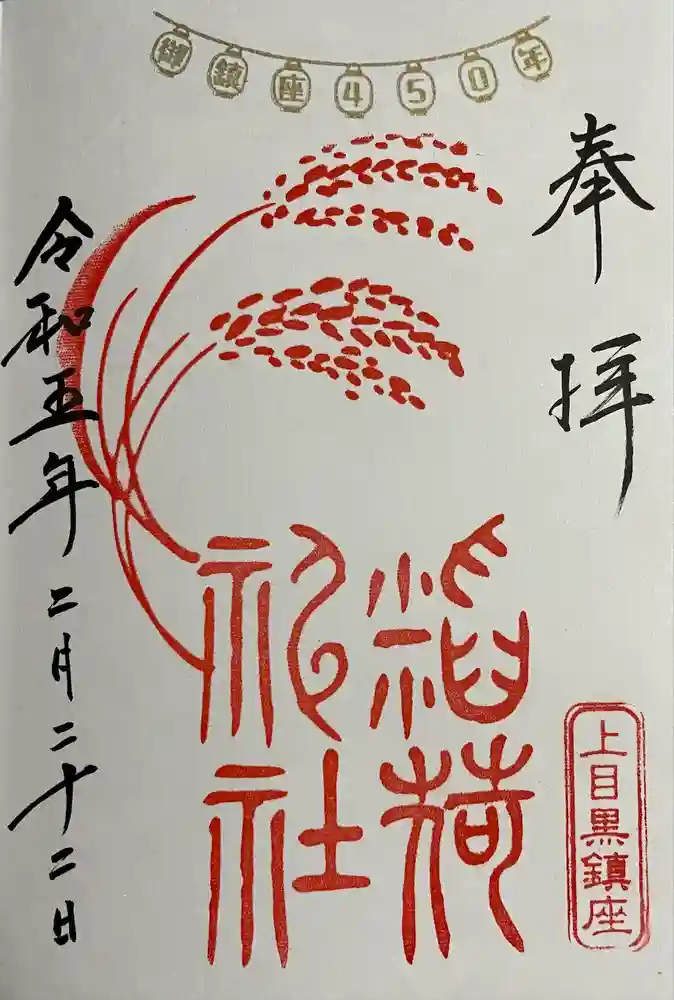 御鎮座450年
奉拝
稲荷
神社
上目黒鎮座
令和五年二月二十二日